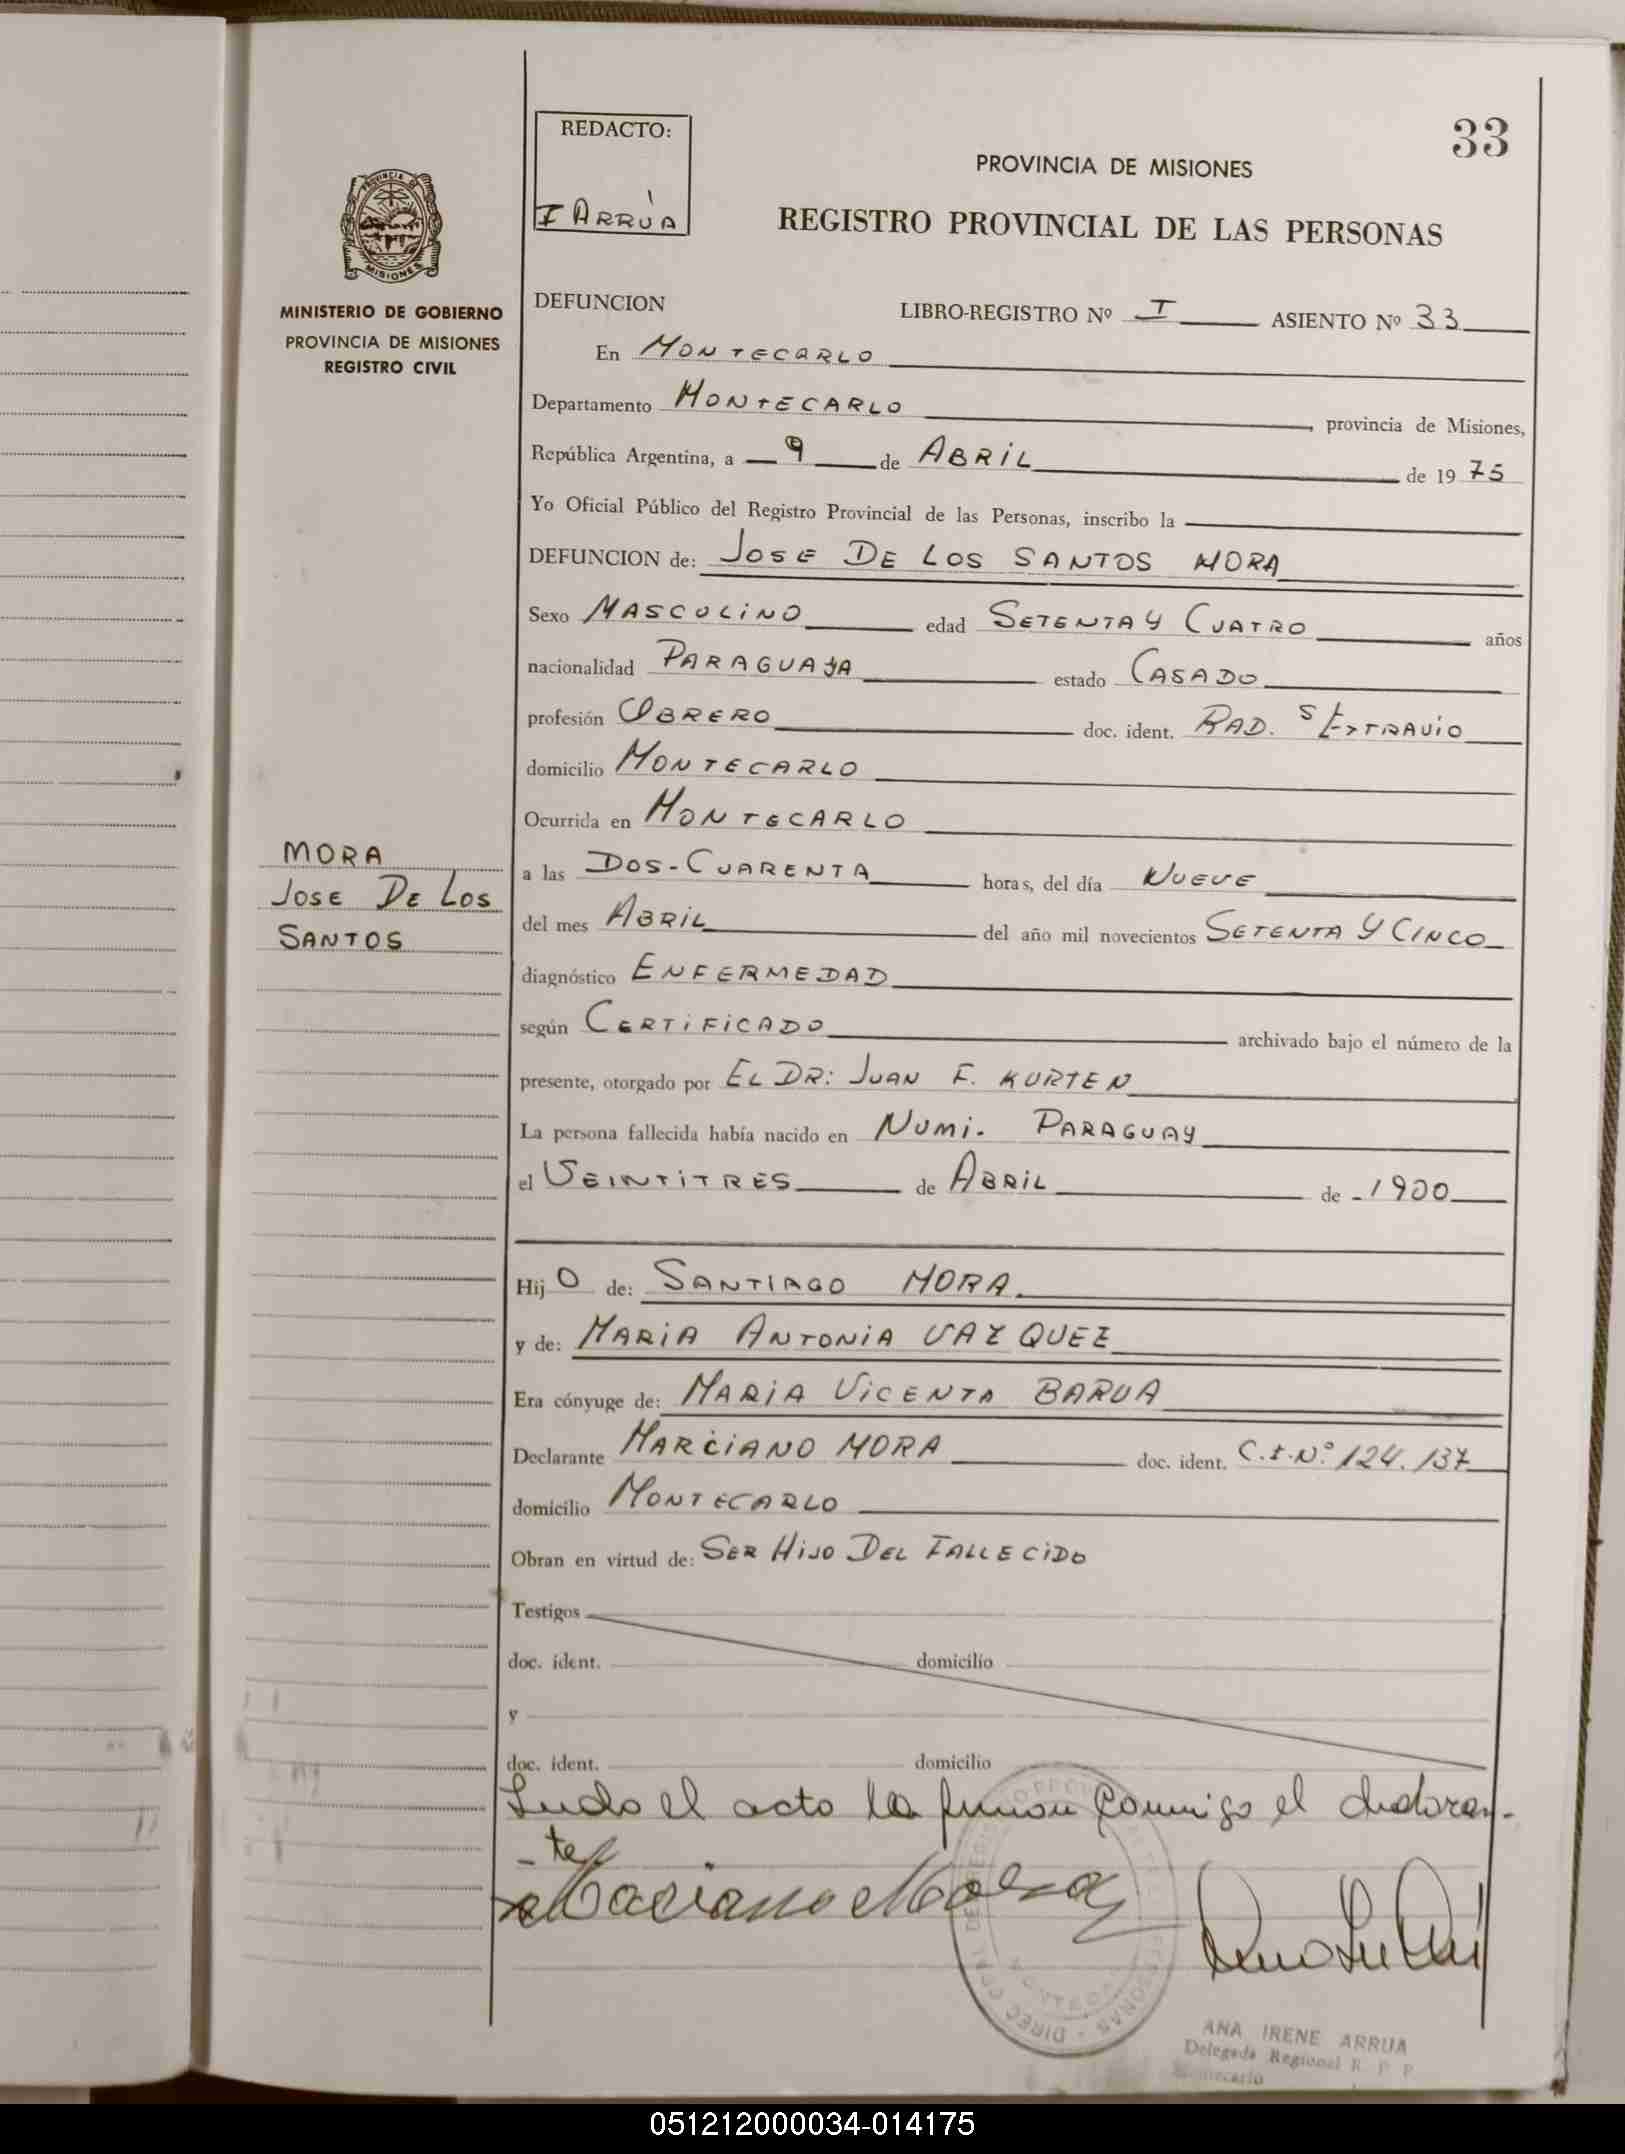 33
REDACTO:
I ARRÚA
PROVINCIA DE MISIONES
REGISTRO PROVINCIAL DE LAS PERSONAS
PROVINCIA DE
MISIONES
MINISTERIO DE GOBIERNO
PROVINCIA DE MISIONES
REGISTRO CIVIL
DEFUNCION LIBRO-REGISTRO Nº I ASIENTO Nº 33
En MONTECARLO
Departamento MONTECARLO, provincia de Misiones,
República Argentina, a 9 de ABRIL de 1975
Yo Oficial Público del Registro Provincial de las Personas, inscribo la
DEFUNCION de: JOSE DE LOS SANTOS MORA
Sexo MASCULINO edad SETENTA Y CUATRO años
nacionalidad PARAGUAYA estado CASADO
profesión OBRERO doc. ident. RAD. S/EXTRAVIO
domicilio MONTECARLO
Ocurrida en MONTECARLO
MORA
JOSE DE LOS
SANTOS
a las DOS-CUARENTA horas, del día NUEVE
del mes ABRIL del año mil novecientos SETENTA Y CINCO
diagnóstico ENFERMEDAD
según CERTIFICADO archivado bajo el número de la
presente, otorgado por EL DR: JUAN F. KURTEN
La persona fallecida había nacido en NUMI. PARAGUAY
el VEINTITRES de ABRIL de 1900
Hij O de: SANTIAGO MORA.
y de: MARIA ANTONIA VAZQUEZ
Era cónyuge de: MARIA VICENTA BARUA
Declarante MARCIANO MORA doc. ident. C.I.Nº 124.137
domicilio MONTECARLO
Obran en virtud de: SER HIJO DEL FALLECIDO
Testigos
doc. ident. domicilio
y
doc. ident. domicilio
Leido el acto la firman conmigo el declaran-
-te
Marciano Mora
ANA IRENE ARRUA
Delegada Regional R. P. P
Montecarlo
051212000034-014175